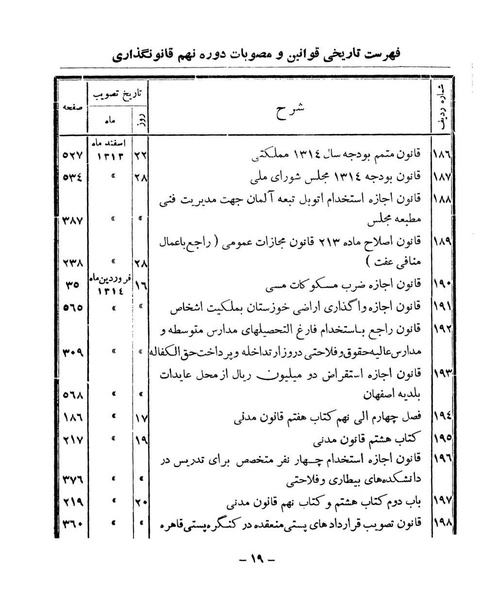 فهرست تاریخی قوانین و مصوبات دوره نهم قانونگذاری
شماره ردیف شرح تاریخ تصویب صفحه
روز ماه
۱۸۶ قانون متمم بودجه سال ۱۳۱۴ مملکتی ۲۲ اسفند ماه ۱۳۱۳ ۵۲۷
۱۸۷ قانون بودجه ۱۳۱۴ مجلس شورای ملی ۲۸ » ۵۳۴
۱۸۸ قانون اجازه استخدام اتوبل تبعه آلمان جهت مدیریت فنی
مطبعه مجلس » » ۳۸۷
۱۸۹ قانون اصلاح ماده ۲۱۳ قانون مجازات عمومی ( راجع باعمال
منافی عفت ) ۲۸ » ۲۳۸
۱۹۰ قانون اجازه ضرب مسکوکات مسی ۱۶ فروردین ماه ۱۳۱۴ ۳۵
۱۹۱ قانون اجازه واگذاری اراضی خوزستان بملکیت اشخاص » » ۵۶۵
۱۹۲ قانون راجع باستخدام فارغ التحصیلهای مدارس متوسطه و
مدارس عالیه حقوق و فلاحتی دروزارتداخله و پرداخت حق الکفاله » » ۳۰۹
۱۹۳ قانون اجازه استقراض دو میلیون ریال از محل عایدات
بلدیه اصفهان » » ۵۶۸
۱۹۴ فصل چهارم الی نهم کتاب هفتم قانون مدنی ۱۷ » ۱۸۶
۱۹۵ کتاب هشتم قانون مدنی ۱۹ » ۲۱۷
۱۹۶ قانون اجازه استخدام چهار نفر متخصص برای تدریس در
دانشکده‌های بیطاری و فلاحتی » » ۳۷۶
۱۹۷ باب دوم کتاب هشتم و کتاب نهم قانون مدنی ۲۰ » ۲۱۹
۱۹۸ قانون تصویب قراردادهای پستی منعقده در کنگره پستی قاهره » » ۳۶۰
– ۱۹ –